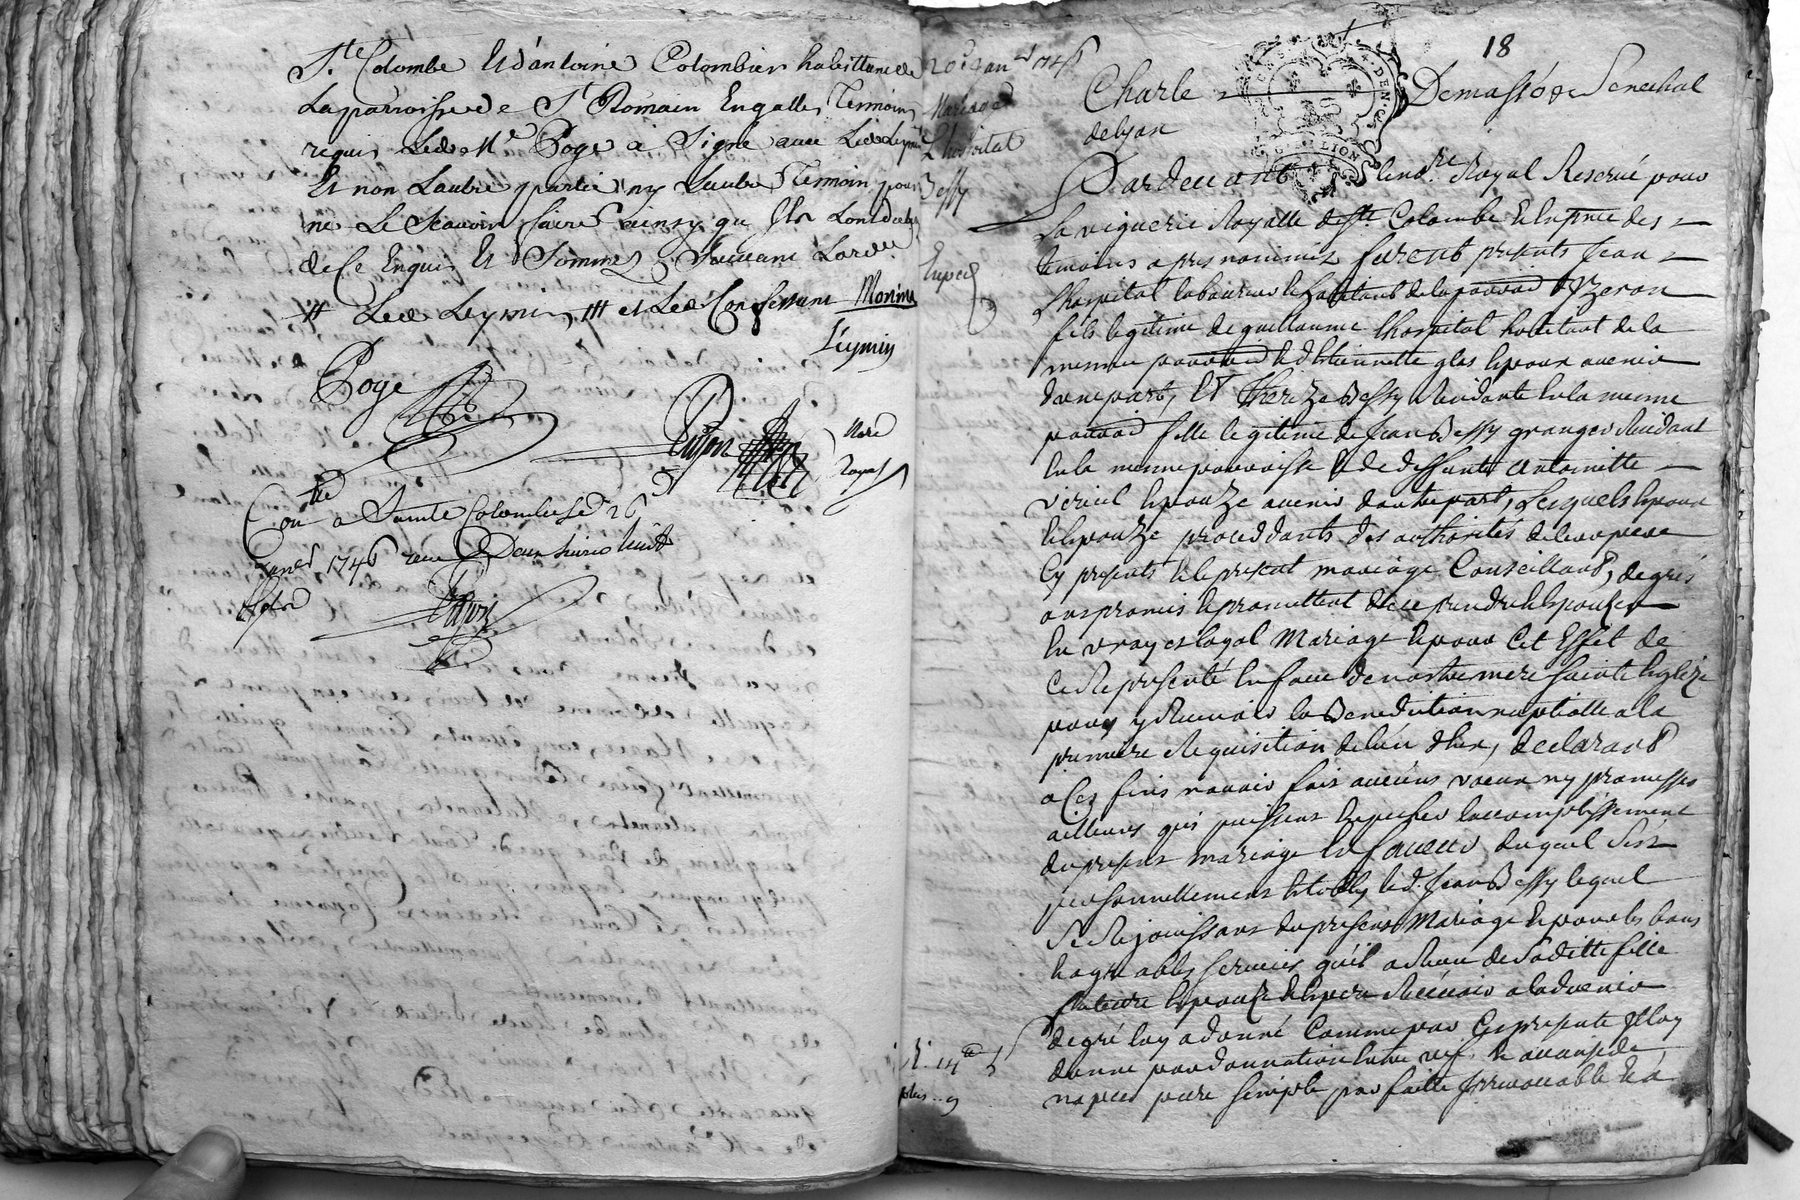 Ste Colombe Et d'antoine Colombier habittant de
La parroisse de St Romain En galle, Temoins
requis Led. Me Poge a Signé avec Led. Leymin
Et non Lautre partie ny Lautre Temoin pour
ne Le Scavoir faire ainsy qu Ils Lont declaré
de Ce Enquis Et Sommez Suivant Lord.
Led. Leymin, et Led. Confessant Morime
Leymin
Poge
Nore
Royal
Con.lle a Sainte Colombe Le 26
Janer 1746 receu Douze huit
20e Janer 1746
Mariage
L'hospital
Bessy
Exped
18
Charle Demasso Senechal
de Lyon
Pardevant le no.re Royal Reservé pour
La viguerie Royalle de Ste Colombe Et En pnce des
temoins apres nommez furent presents Jean
Lhospital laboureur habitant de la parroisse
fils legitime de guillaume Lhospital habitant de la
mesme parroisse Et d'Etiennette glas Epoux avenir
dune part, Et Thereze Bessy Residante En la mesme
parroisse fille legitime de Jean Bessy granger Residant
En la mesme parroisse Et de deffunte antoinette
Epouze avenir dautre part, Lesquels Epoux
Et Epouze procedants des authorités de leurs peres
Cy presents Et le present mariage Conseillant, de gré
ont promis Et promettent de se prendre Et Epouser
En vray et legal Mariage Et pour Cet Effet de
Ce Representé En face de nostre mere Sainte Eglize
pour y Recevoir la Benediction nuptialle a la
premiere Requisition de lun d'Eux, declarant
a Ces fins navoir fait aucuns voeux ny promesses
ailleurs qui puissent Empecher laccomplissement
du present mariage En faveur duquel S'est
personnellement Etably led. Jean Bessy lequel
Se Rejouissant du present Mariage Et pour les bons
Et agreables services quil a Receu de Saditte fille
future Epouze Et Espere Recevoir a ladvenir
de gré luy a donné Comme par Ces presente Il luy
donne par donnation Entre vifs Et a cause de
nopces pure simple parfaitte Irrevocable Et a